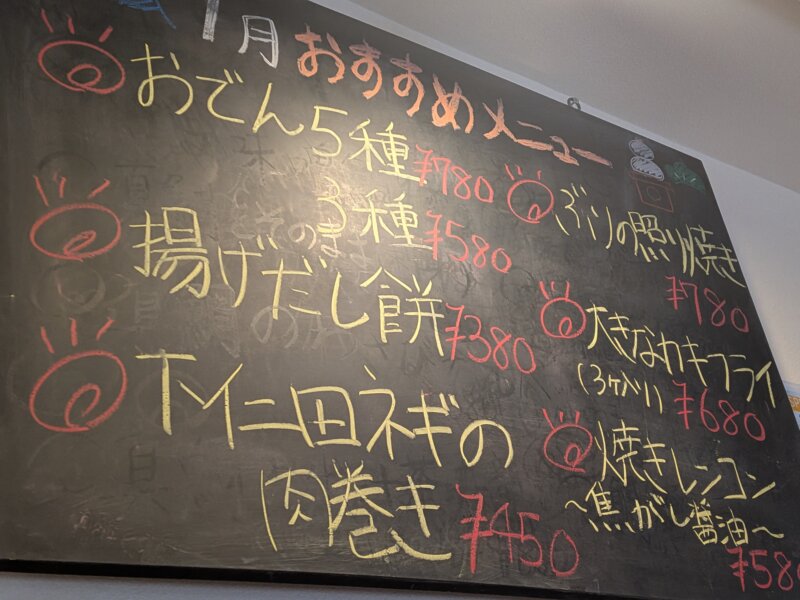 1月 おすすめメニュー
おでん5種 ¥780
3種 ¥580
揚げだし餅 ¥380
下仁田ネギの
肉巻き ¥450
ぶりの照り焼き
¥780
大きなカキフライ
(3ヶ入り) ¥680
焼きレンコン
〜焦がし醤油〜
¥580